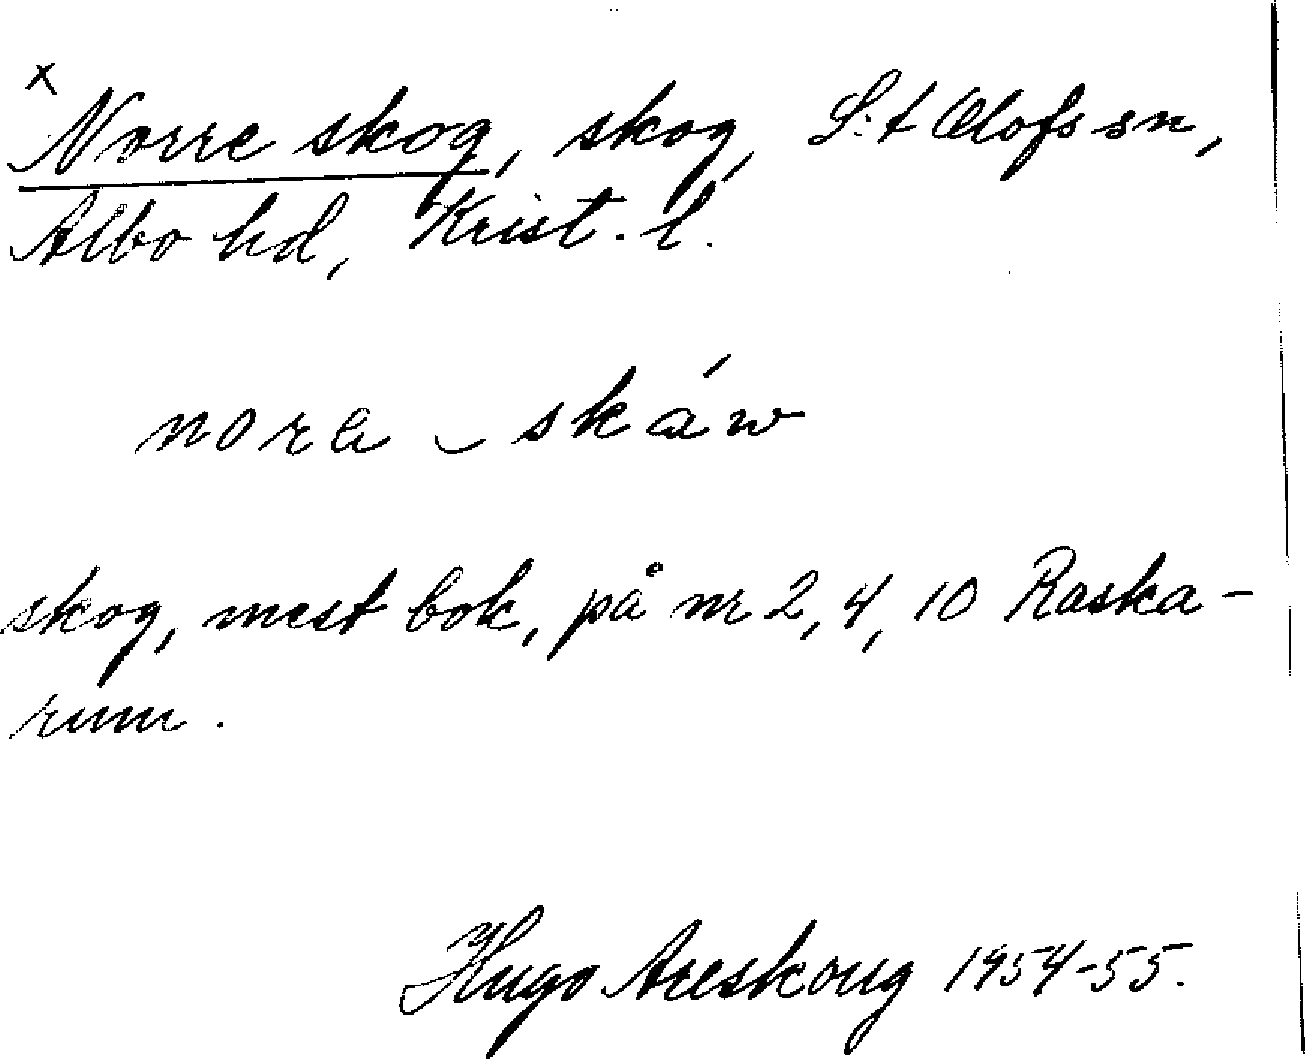 x
Norre skog, skog, S:t Olofs sn,
Albo hd, Krist. l.
nora ‿ skáw
skog, mest bok, på nr 2, 4, 10 Raska-
rum.
Hugo Areskoug 1954-55.